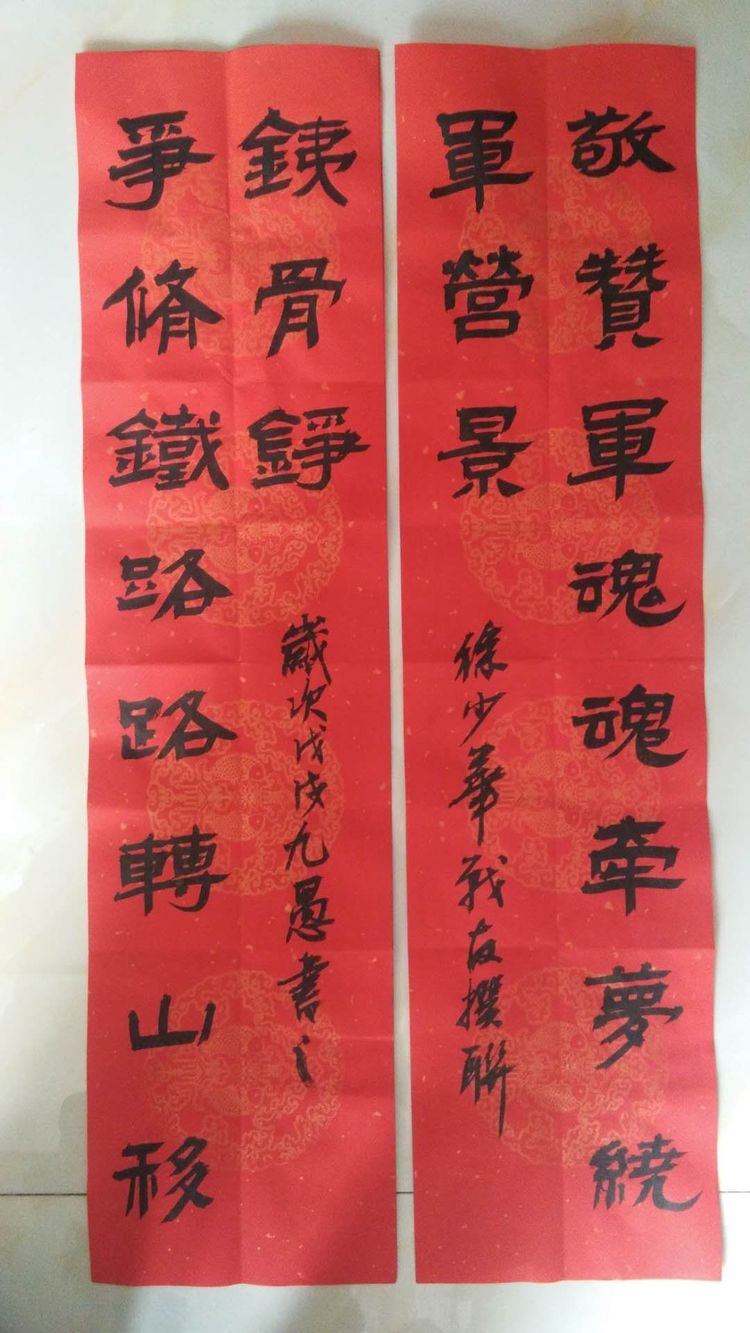 敬贊軍魂魂牽夢繞
軍營景
徐少華战友撰聯
爭脩鐵路路轉山移
銕骨錚
歲次戊戌九愚書之